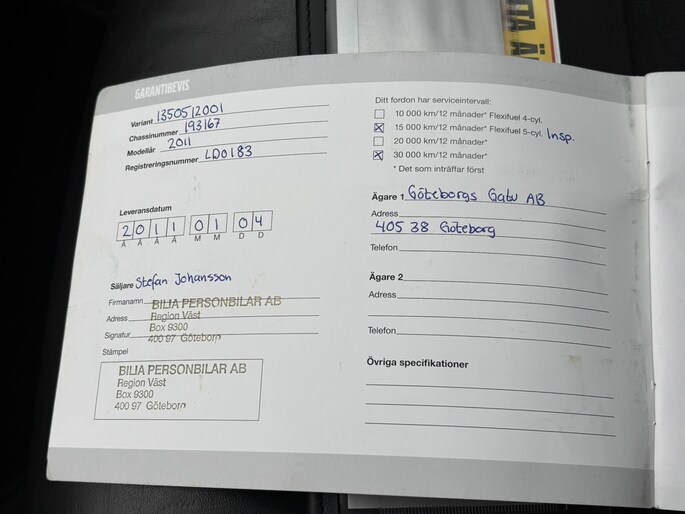 GARANTIBEVIS
Variant 1350512001
Chassinummer 193167
Modellår 2011
Registreringsnummer LDO183
Leveransdatum
2011 01 04
Å Å Å Å M M D D
Säljare Stefan Johansson
Firmanamn BILIA PERSONBILAR AB
Region Väst
Adress Box 9300
Signatur 400 97 Göteborg
Stämpel
BILIA PERSONBILAR AB
Region Väst
Box 9300
400 97 Göteborg
Ditt fordon har serviceintervall:
10 000 km/12 månader* Flexifuel 4-cyl.
15 000 km/12 månader* Flexifuel 5-cyl. Insp.
20 000 km/12 månader*
30 000 km/12 månader*
* Det som inträffar först
Ägare 1 Göteborgs Gatu AB
Adress
405 38 Göteborg
Telefon
Ägare 2
Adress
Telefon
Övriga specifikationer